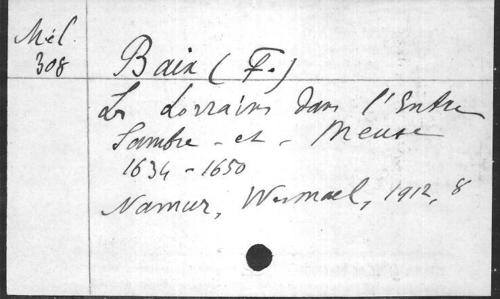 Mél.
308
Baix (F.)
Les Lorrains dans l'Entre
Sambre - et - Meuse
1634 - 1650
Namur, Wesmael, 1912, 8